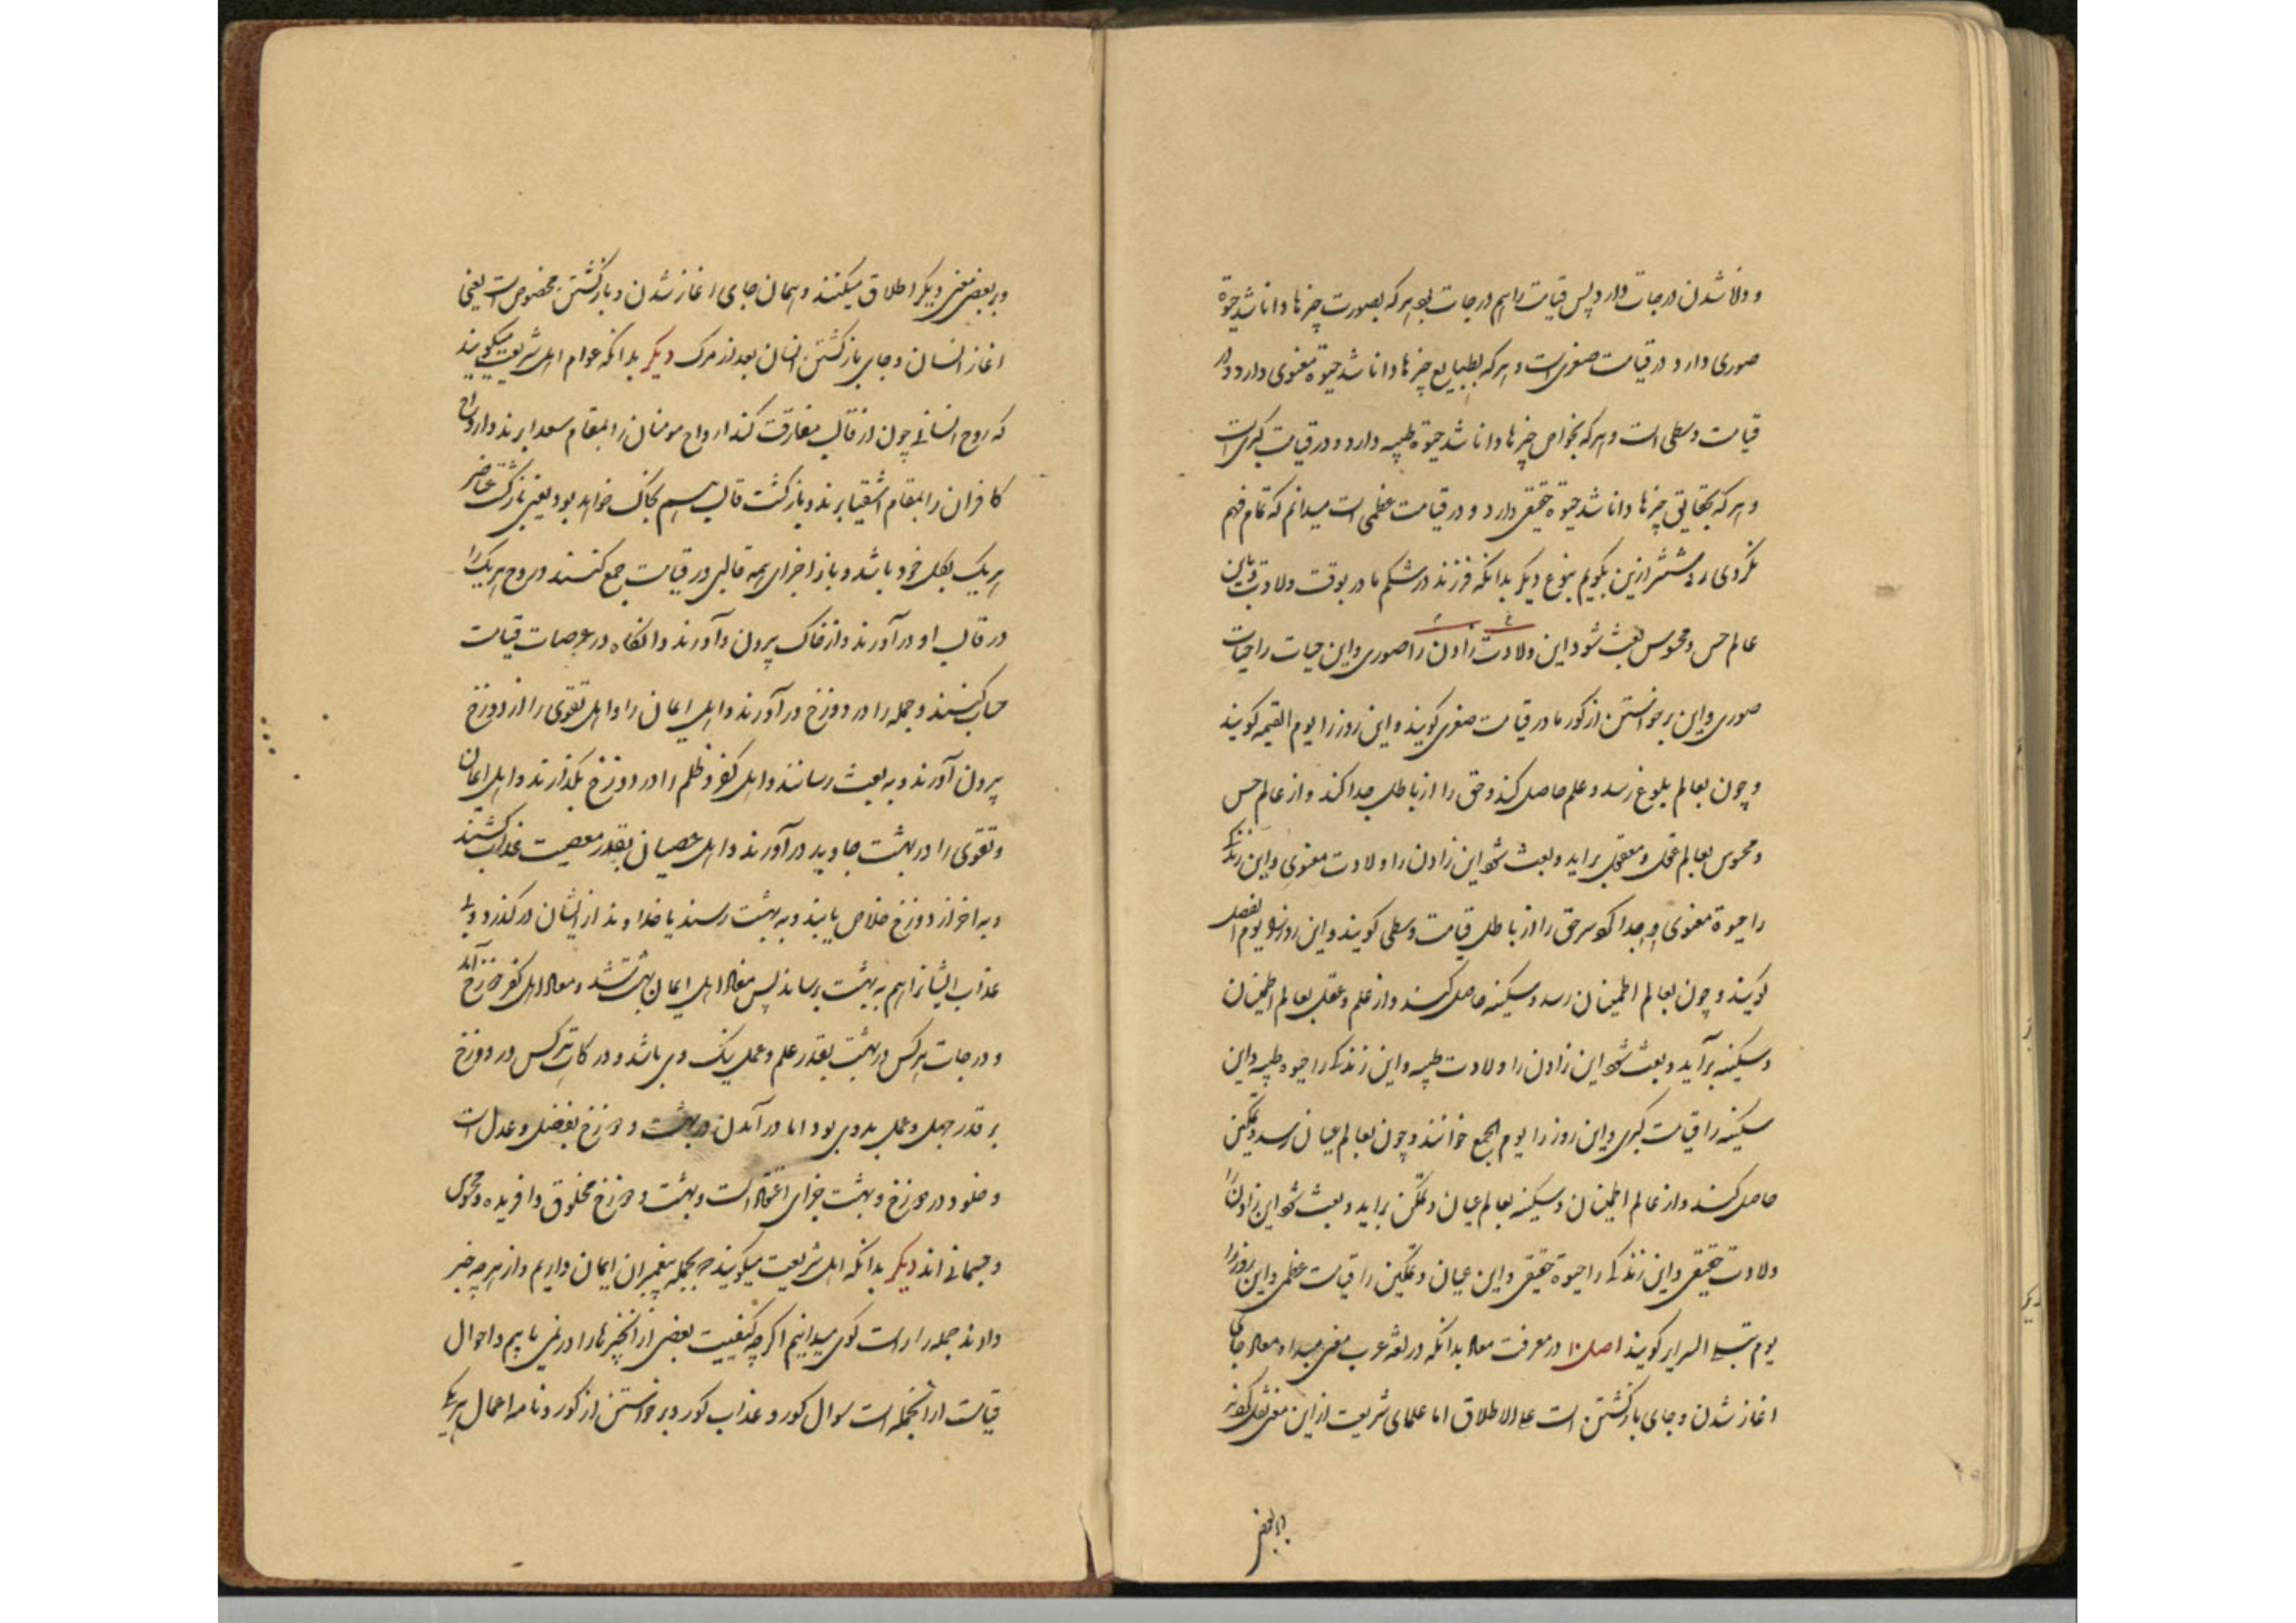 و دانا شدن درجات دارد پس قیامت را هم درجات بود هر که بصورت چیزها دانا شد حیوة
صوری دارد و در قیامت صغری است و هر که بطبایع چیزها دانا شد حیوة معنوی دارد و در
قیامت وسطی است و هر که بخواص چیزها دانا شد حیوة طیبه دارد و در قیامت کبری است
و هر که بحقایق چیزها دانا شد حیوة حقیقی دارد و در قیامت عظمی است میدانم که تمام فهم
نکردی روشنتر ازین بگویم بنوع دیگر بدانکه فرزند در شکم مادر بوقت ولادت باین
عالم حس و محسوس بعث شود این ولادت زادن را صوری و این حیات را حیات
صوری و این برخواستن از کور مادر قیامت صغری کویند و این روز را یوم القیمه کویند
و چون بعالم بلوغ رسد و علم حاصل کند و حق را از باطل جدا کند و از عالم حس
و محسوس بعالم عقل و معقول براید و بعث شود این زادن را ولادت معنوی و این زندکی
را حیوة معنوی و جدا کردن حق را از باطل قیامت وسطی کویند و این روز را یوم الفصل
کویند و چون بعالم اطمینان رسد و سکینه حاصل کند و از علم و عقل بعالم اطمینان
و سکینه برآید و بعث شود این زادن را ولادت طیبه و این زندکی را حیوة طیبه و این
سکینه را قیامت کبری و این روز را یوم الجمع خوانند و چون بعالم عیان رسد و تمکین
حاصل کند و از عالم اطمینان و سکینه بعالم عیان و تمکین براید و بعث شود این زادن را
ولادت حقیقی و این زندکی را حیوة حقیقی و این عیان و تمکین را قیامت عظمی و این روز را
یوم تبلی السرایر کویند اصل ۱۰ در معرفت معاد بدانکه در لغة عرب معنی مبداء و معاد جای
اغاز شدن و جای بازکشتن است علی الاطلاق اما علمای شریعت از این معنی نقل کردند
و بر بعضی
و بر بعضی معنی دیگر اطلاق میکنند و همان جای اغاز شدن و بازکشتن مخصوص است یعنی
اغاز انسان و جای بازکشتن انسان بعد از مرک دیگر بدانکه عوام اهل شریعت میکویند
که روح انسانی چون از قالب مفارقت کند ارواح مومنان را بمقام سعدا برند و ارواح
کافران را بمقام اشقیا برند و بازکشت قالب هم بخاک خواهد بود یعنی بازکشت عناصر
هر یک بکل خود باشد و باز اجزای همه قالبی در قیامت جمع کنند و روح هر یک را
در قالب او درآورند و از خاک بیرون آورند و انکاه در عرصات قیامت
حساب کنند و جمله را در دوزخ درآورند و اهل ایمان را و اهل تقوی را از دوزخ
بیرون آورند و به بعث رسانند و اهل کفر و ظلم را در دوزخ بگذارند و اهل ایمان
و تقوی را در بهشت جاوید درآورند و اهل عصیان بقدر معصیت عذاب کشند
و به اخر از دوزخ خلاص یابند و به بهشت رسند یا خداوند از ایشان درکذرد و بی
عذاب ایشانرا هم به بهشت رساند پس معاد اهل ایمان بهشت شد و معاد اهل کفر دوزخ آمد
و درجات هر کس در بهشت بقدر علم و عمل نیک وی باشد و درکات هر کس در دوزخ
بر قدر جهل و عمل بد وی بود اما در آمدن در بهشت و دوزخ بفضل و عدل است
و خلود در دوزخ و بهشت جزای اعتقاد است و بهشت و دوزخ مخلوق و افریده و محسوس
و جسمانی اند دیگر بدانکه اهل شریعت میکویند که بجمله پیغمبران ایمان داریم و از هر چه خبر
دادند جمله را راست کوی میدانیم اگر چه کیفییت بعضی از آنچیزها را در نمی یابیم و احوال
قیامت از انجمله است سوال کور و عذاب کور و برخواستن از کور و نامه اعمال هر یک